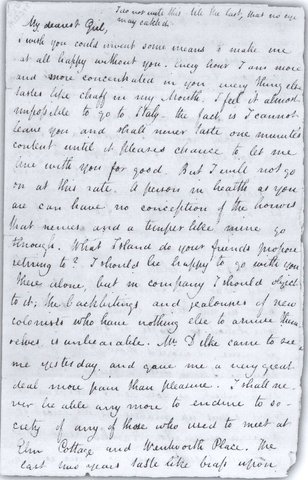 I do not write this till the last, that no eye
may catch it.
My dearest Girl,
I wish you could invent some means to make me
at all happy without you. Every hour I am more
and more concentrated in you; every thing else
tastes like chaff in my Mouth. I feel it almost
impossible to go to Italy - the fact is I cannot
leave you, and shall never taste one minute's
content until it pleases chance to let me
live with you for good. But I will not go
on at this rate. A person in health as you
are can have no conception of the horrors
that nerves and a temper like mine go
through. What Island do your friends propose
retiring to? I should be happy to go with you
there alone, but in company I should object
to it; the backbitings and jealousies of new
colonists who have nothing else to amuse them
selves, is unbearable. Mr Dilke came to see
me yesterday, and gave me a very great
deal more pain than pleasure. I shall ne
ver be able any more to endure to so-
ciety of any of those who used to meet at
Elm Cottage and Wentworth Place. The
last two years taste like brass upon